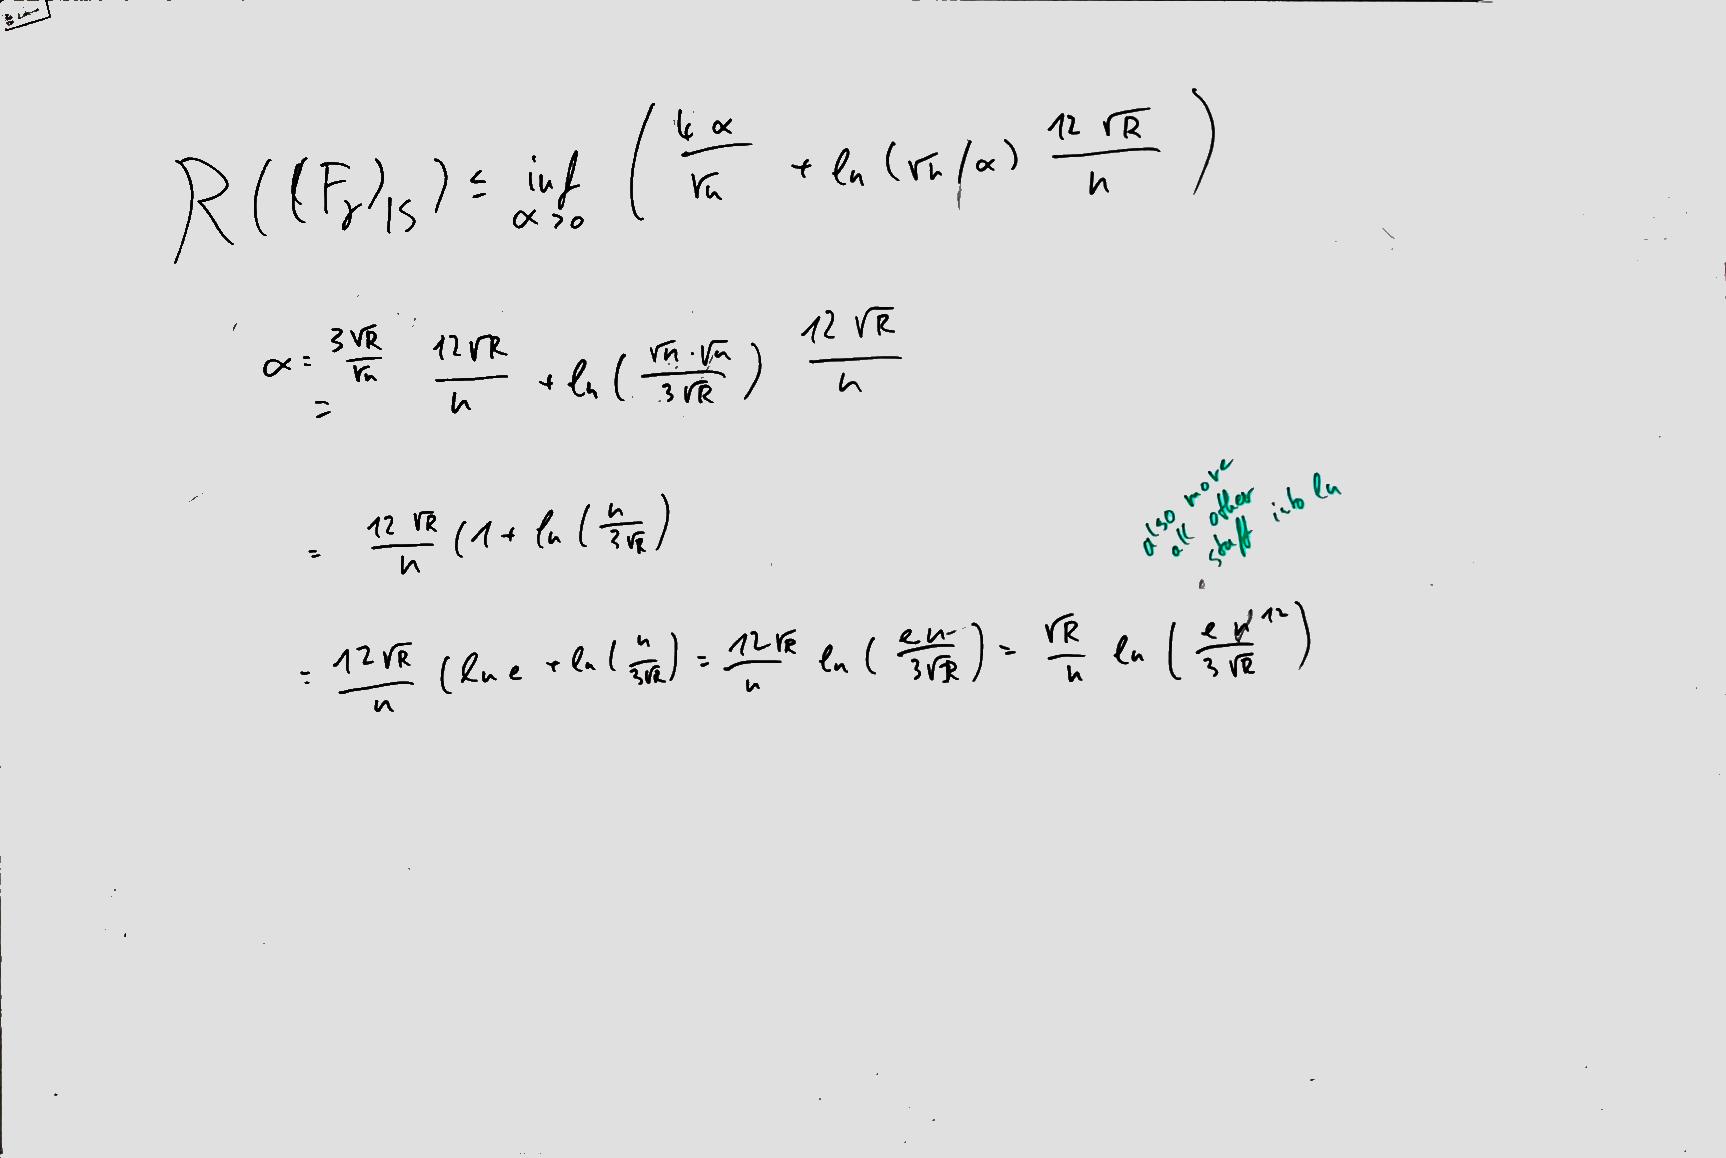 R((F_γ)_{|S}) ≤ inf_{α>0} ( 4α/√n + ln(√n/α) 12√R/n )
α = 3√R/√n
= 12√R/n + ln( √n·√n / 3√R ) 12√R/n
= 12√R/n (1 + ln( n/3√R )
also more
all other
stuff into ln
= 12√R/n (ln e + ln( n/3√R ) = 12√R/n ln( en/3√R ) = √R/n ln( e n^{12} / 3√R )